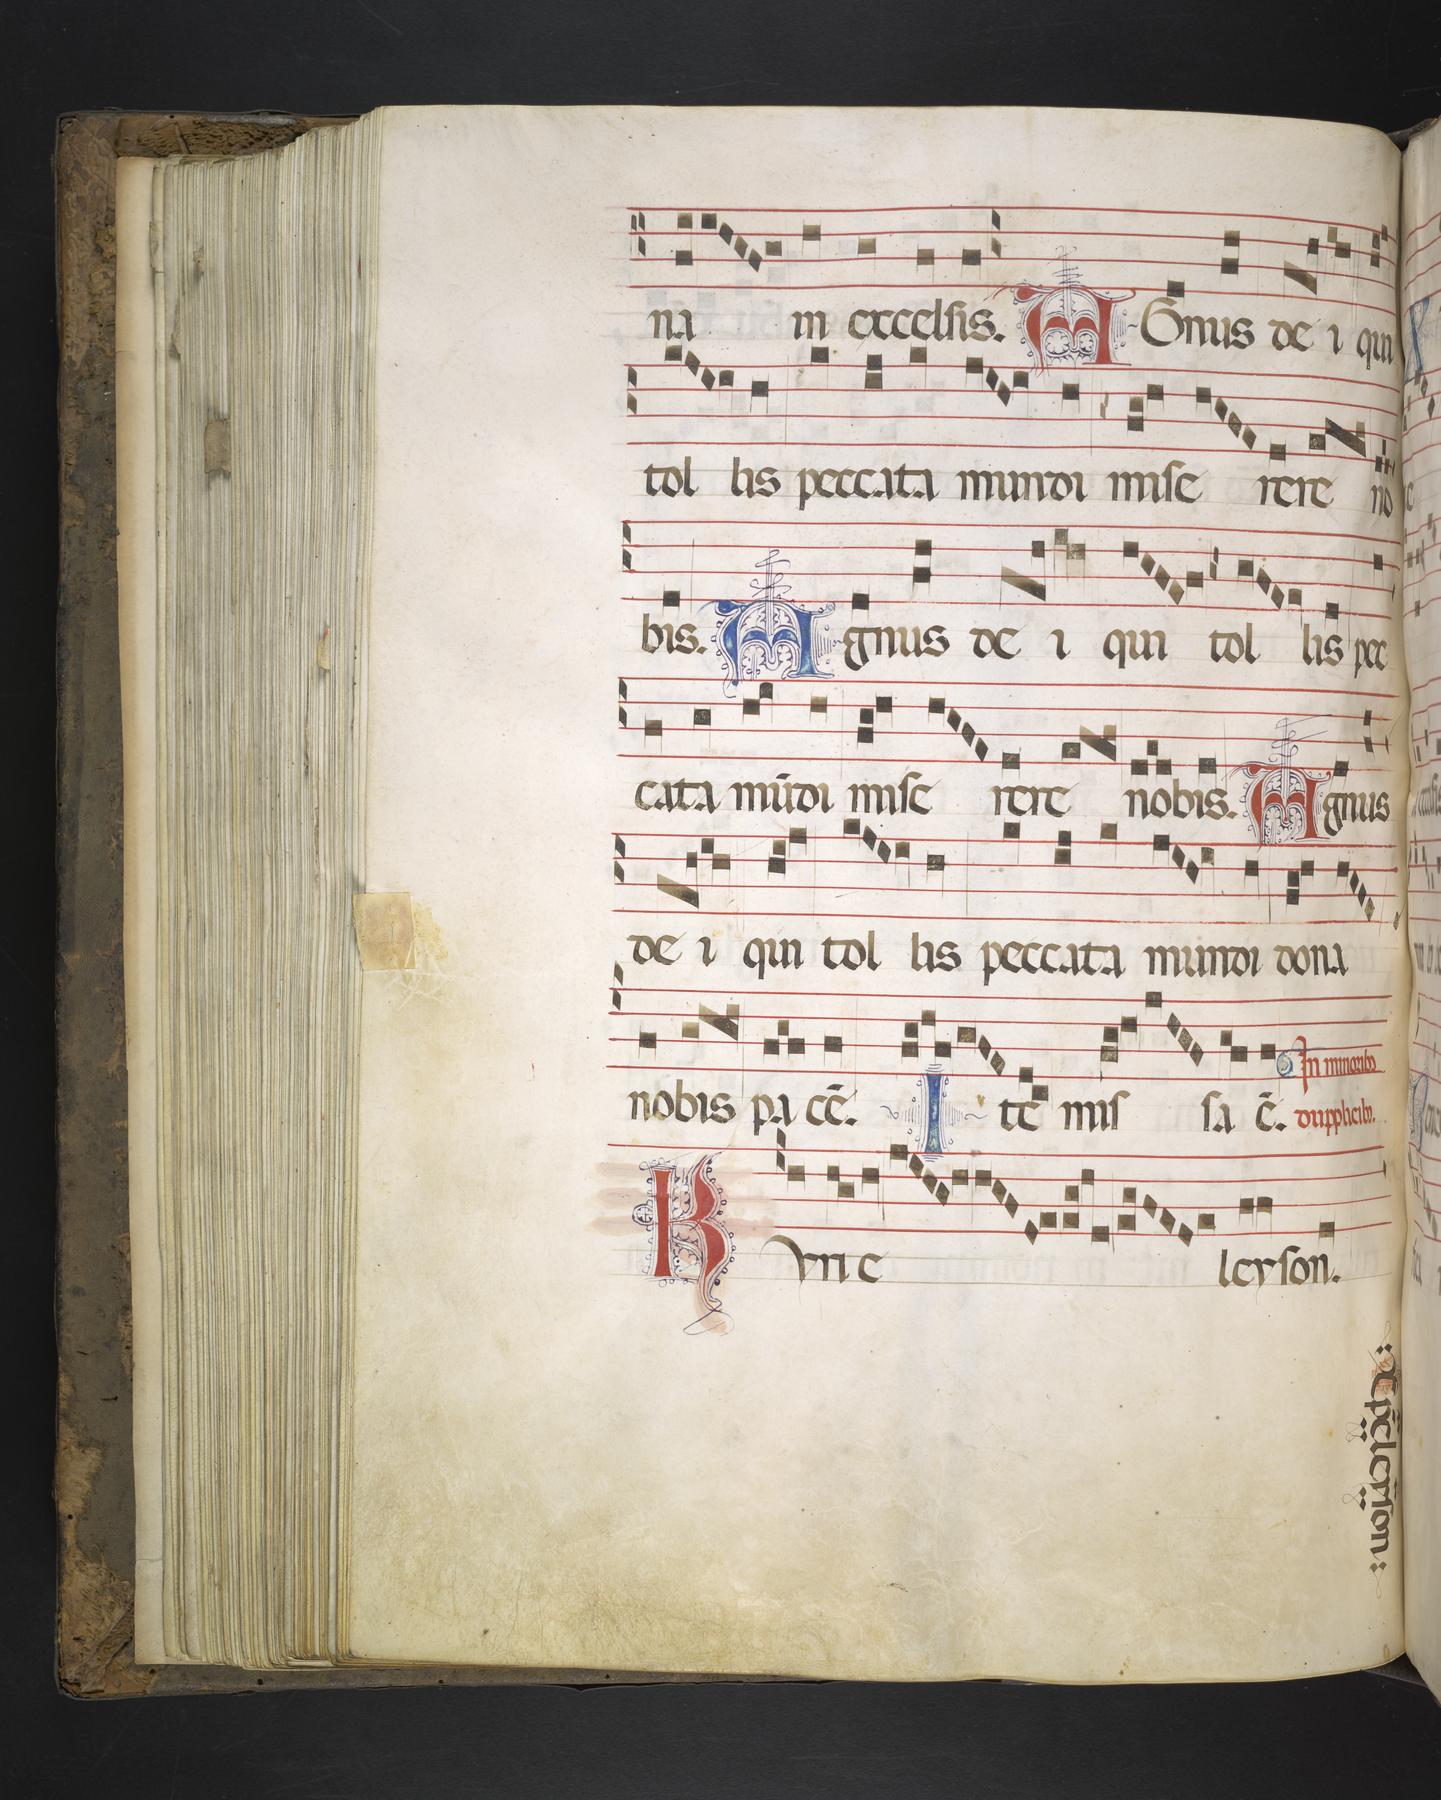 na in excelsis. A Gnus de i qui
tol lis peccata mundi mise rere no
bis. A gnus de i qui tol lis pec
cata mūdi mise rere nobis. A gnus
de i qui tol lis peccata mundi dona
nobis pa cē. I te mis sa ē. In minoribꝰ dupplicibꝰ.
K yri e leyson.